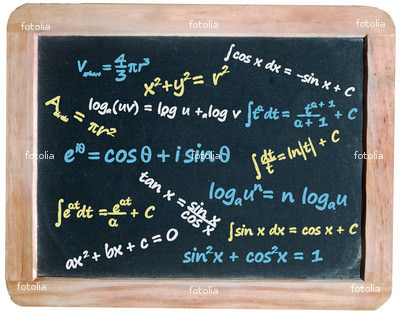 fotolia fotolia fotolia
V_sphere = 4/3 πr³
∫cos x dx = -sin x + C
x² + y² = r²
A_circle = πr²
logₐ(uv) = logu + ₐlog v
∫tᵃ dt = tᵃ⁺¹/a + 1 + C
fotolia fotolia fotolia
e^iθ = cos θ + i sin θ
∫dt/t = ln|t| + C
tan x = sin x/cos x
logₐuⁿ = n logₐu
∫eᵃᵗdt = eᵃᵗ/a + C
∫sin x dx = cos x + C
ax² + bx + c = 0
sin²x + cos²x = 1
fotolia fotolia fotolia